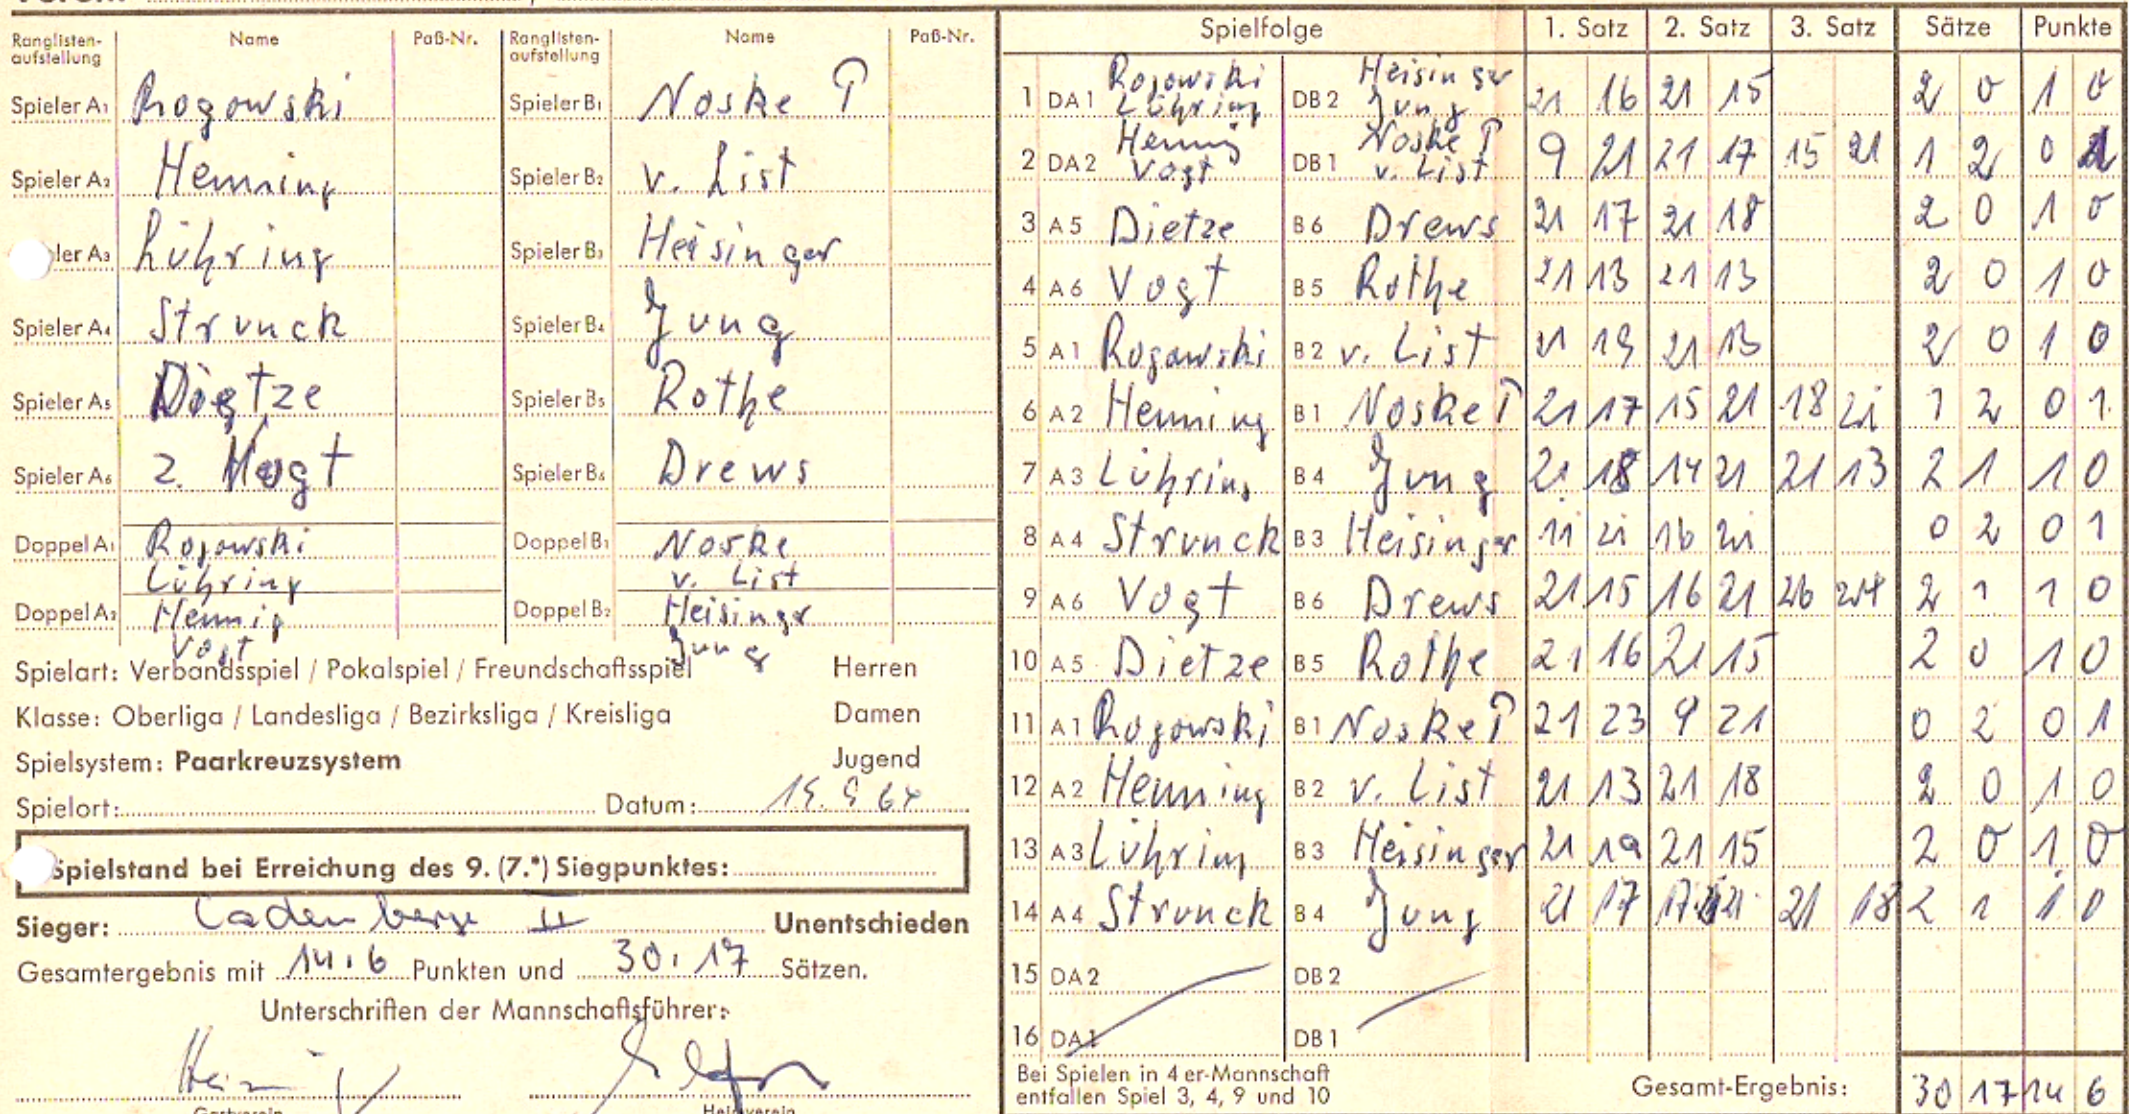 Ranglisten-aufstellung Name Paß-Nr. Ranglisten-aufstellung Name Paß-Nr.
Spieler A1 Rogowski Spieler B1 Noske P
Spieler A2 Henning Spieler B2 v. List
ler A3 Lühring Spieler B3 Heisinger
Spieler A4 Strunck Spieler B4 Jung
Spieler A5 Dietze Spieler B5 Rothe
Spieler A6 2. Vogt Spieler B6 Drews
Doppel A1 Rogowski Doppel B1 Noske
Lühring v. List
Doppel A2 Hennig Doppel B2 Heisinger
Vogt Jung
Spielart: Verbandsspiel / Pokalspiel / Freundschaftsspiel Herren
Klasse: Oberliga / Landesliga / Bezirksliga / Kreisliga Damen
Spielsystem: Paarkreuzsystem Jugend
Spielort: Datum: 15. 9 64
Spielstand bei Erreichung des 9. (7.*) Siegpunktes:
Sieger: Cadenberge II Unentschieden
Gesamtergebnis mit 14:6 Punkten und 30:17 Sätzen.
Unterschriften der Mannschaftsführer:
Gastverein Heimverein
Spielfolge 1. Satz 2. Satz 3. Satz Sätze Punkte
1 DA1 Rogowski Lühring DB2 Heisinger Jung 21 16 21 15 2 0 1 0
2 DA2 Hennig Vogt DB1 Noske P v. List 9 21 21 17 15 21 1 2 0 1
3 A5 Dietze B6 Drews 21 17 21 18 2 0 1 0
4 A6 Vogt B5 Rothe 21 13 21 13 2 0 1 0
5 A1 Rogowski B2 v. List 21 19 21 13 2 0 1 0
6 A2 Henning B1 Noske P 21 17 15 21 18 21 1 2 0 1
7 A3 Lühring B4 Jung 21 18 14 21 21 13 2 1 1 0
8 A4 Strunck B3 Heisinger 11 21 16 21 0 2 0 1
9 A6 Vogt B6 Drews 21 15 16 21 26 24 2 1 1 0
10 A5 Dietze B5 Rothe 21 16 21 15 2 0 1 0
11 A1 Rogowski B1 Noske P 21 23 9 21 0 2 0 1
12 A2 Henning B2 v. List 21 13 21 18 2 0 1 0
13 A3 Lühring B3 Heisinger 21 19 21 15 2 0 1 0
14 A4 Strunck B4 Jung 21 17 17 21 21 18 2 1 1 0
15 DA2 DB2
16 DA1 DB1
Bei Spielen in 4er-Mannschaft
entfallen Spiel 3, 4, 9 und 10
Gesamt-Ergebnis: 30 17 14 6